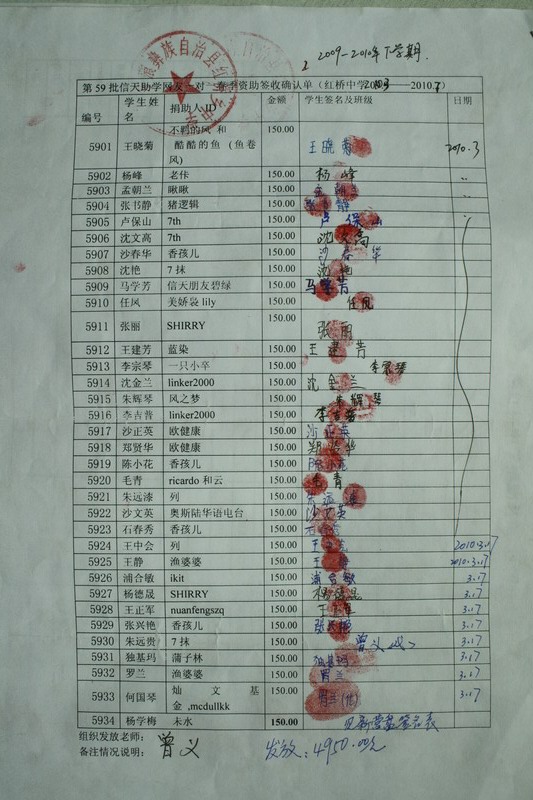 2009-2010年下学期.
第 59 批信天助学网友一对一春季资助签收确认单（红桥中学2010.3——2010.7）
编号 学生姓名 捐助人 ID 金额 学生签名及班级 日期
5901 王晓菊 不羁的风 和酷酷的鱼（鱼卷风） 150.00 王晓菊 2010.3
5902 杨峰 老佧 150.00 杨峰
5903 孟朝兰 瞅瞅 150.00 孟朝兰
5904 张书静 猪逻辑 150.00 张书静
5905 卢保山 7th 150.00 卢保山
5906 沈文高 7th 150.00 沈文高
5907 沙春华 香孩儿 150.00 沙春华
5908 沈艳 7 抹 150.00 沈艳
5909 马学芳 信天朋友碧绿 150.00 马学芳
5910 任凤 美娇袅 lily 150.00 任凤
5911 张丽 SHIRRY 150.00 张丽
5912 王建芳 蓝染 150.00 王建芳
5913 李宗琴 一只小卒 150.00 李宗琴
5914 沈金兰 linker2000 150.00 沈金兰
5915 朱辉琴 风之梦 150.00 朱辉琴
5916 李吉普 linker2000 150.00 李吉普
5917 沙正英 欧健康 150.00 沙正英
5918 郑贤华 欧健康 150.00 郑贤华
5919 陈小花 香孩儿 150.00 陈小花
5920 毛青 ricardo 和云 150.00 毛青
5921 朱远漆 列 150.00
5922 沙文英 奥斯陆华语电台 150.00 沙文英
5923 石春秀 香孩儿 150.00
5924 王中会 列 150.00 2010.3.17
5925 王静 渔婆婆 150.00 王静 2010.3.17
5926 浦合敏 ikit 150.00 浦合敏 3.17
5927 杨德晟 SHIRRY 150.00 3.17
5928 王正军 nuanfengszq 150.00 3.17
5929 张兴艳 香孩儿 150.00 张兴艳 3.17
5930 朱远贵 7 抹 150.00 曾义(代) 3.17
5931 独基玛 蒲子林 150.00 独基玛 3.17
5932 罗兰 渔婆婆 150.00 罗兰 3.17
5933 何国琴 灿文基金 ,mcdullkk 150.00 3.17
5934 杨学梅 未水 150.00
组织发放老师：
备注情况说明： 曾义 发放：4950.00元